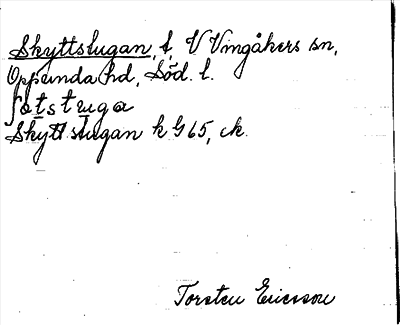 Skyttstugan, t, V Vingåkers sn,
Oppunda hd, Söd. l.
Skyttstugan k G 65, ck.
Torsten Ericsson